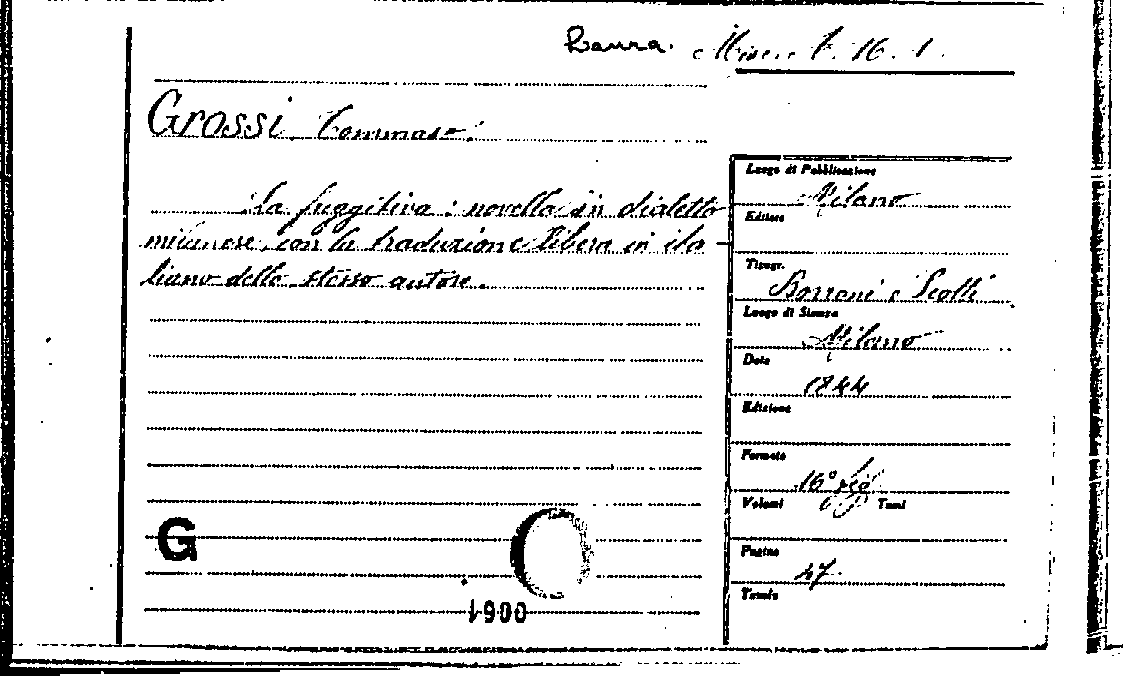 Laura. Misc. b. 16. 1.
Grossi Tommaso.
La fuggitiva: novella in dialetto
milanese con la traduzione libera in ita-
liano dello stesso autore.
Luogo di Pubblicazione
Milano
Editore
Tipogr.
Borroni e Scotti
Luogo di Stampa
Milano
Data
1844
Edizione
Formato
16°
Volumi Tomi
Pagine
47
Tavole
G
1900